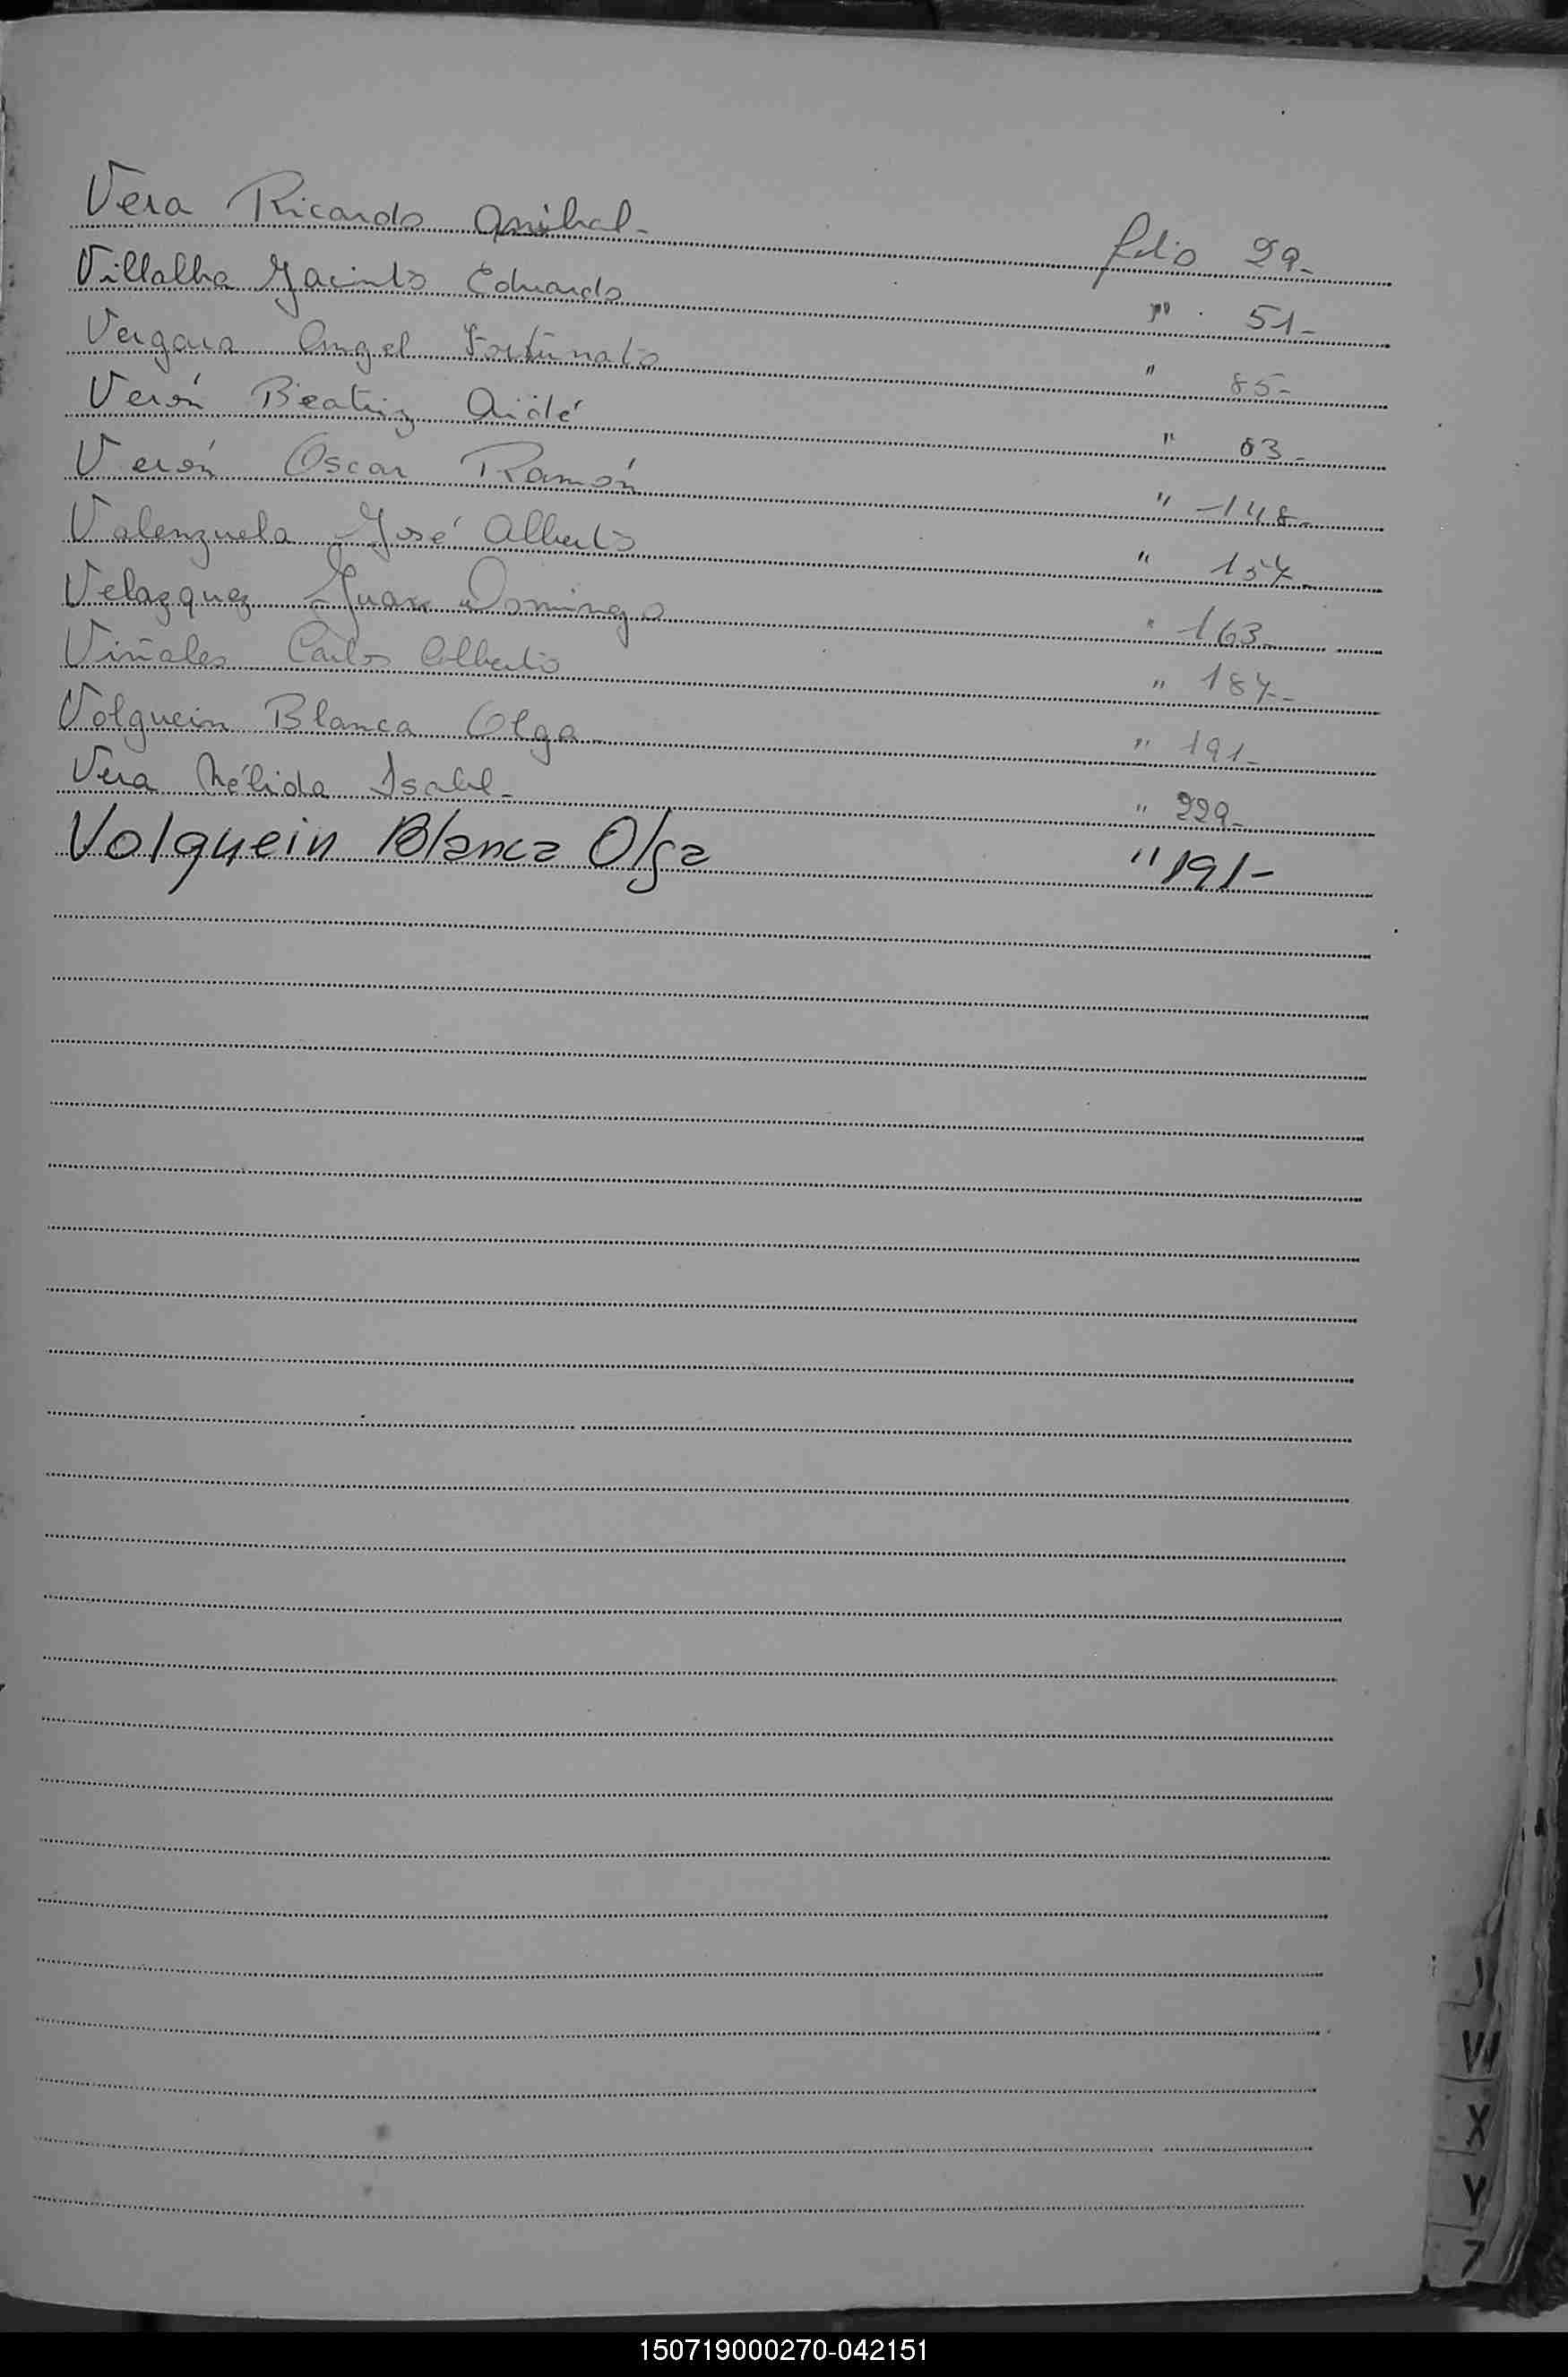 Vera Ricardo Anibal - folio 29-
Villalba Jacinto Eduardo " 51-
Vergara Angel Fortunato " 85-
Verón Beatriz Aidé " 63-
Verón Oscar Ramón " 148-
Valenzuela José Alberto " 157-
Velazquez Juan Domingo " 163-
Viñales Carlos Alberto " 187-
Volguein Blanca Olga - " 191-
Vera Nélida Isabel - " 229-
Volguein Blanca Olga " 191-
W
X
Y
Z
150719000270-042151